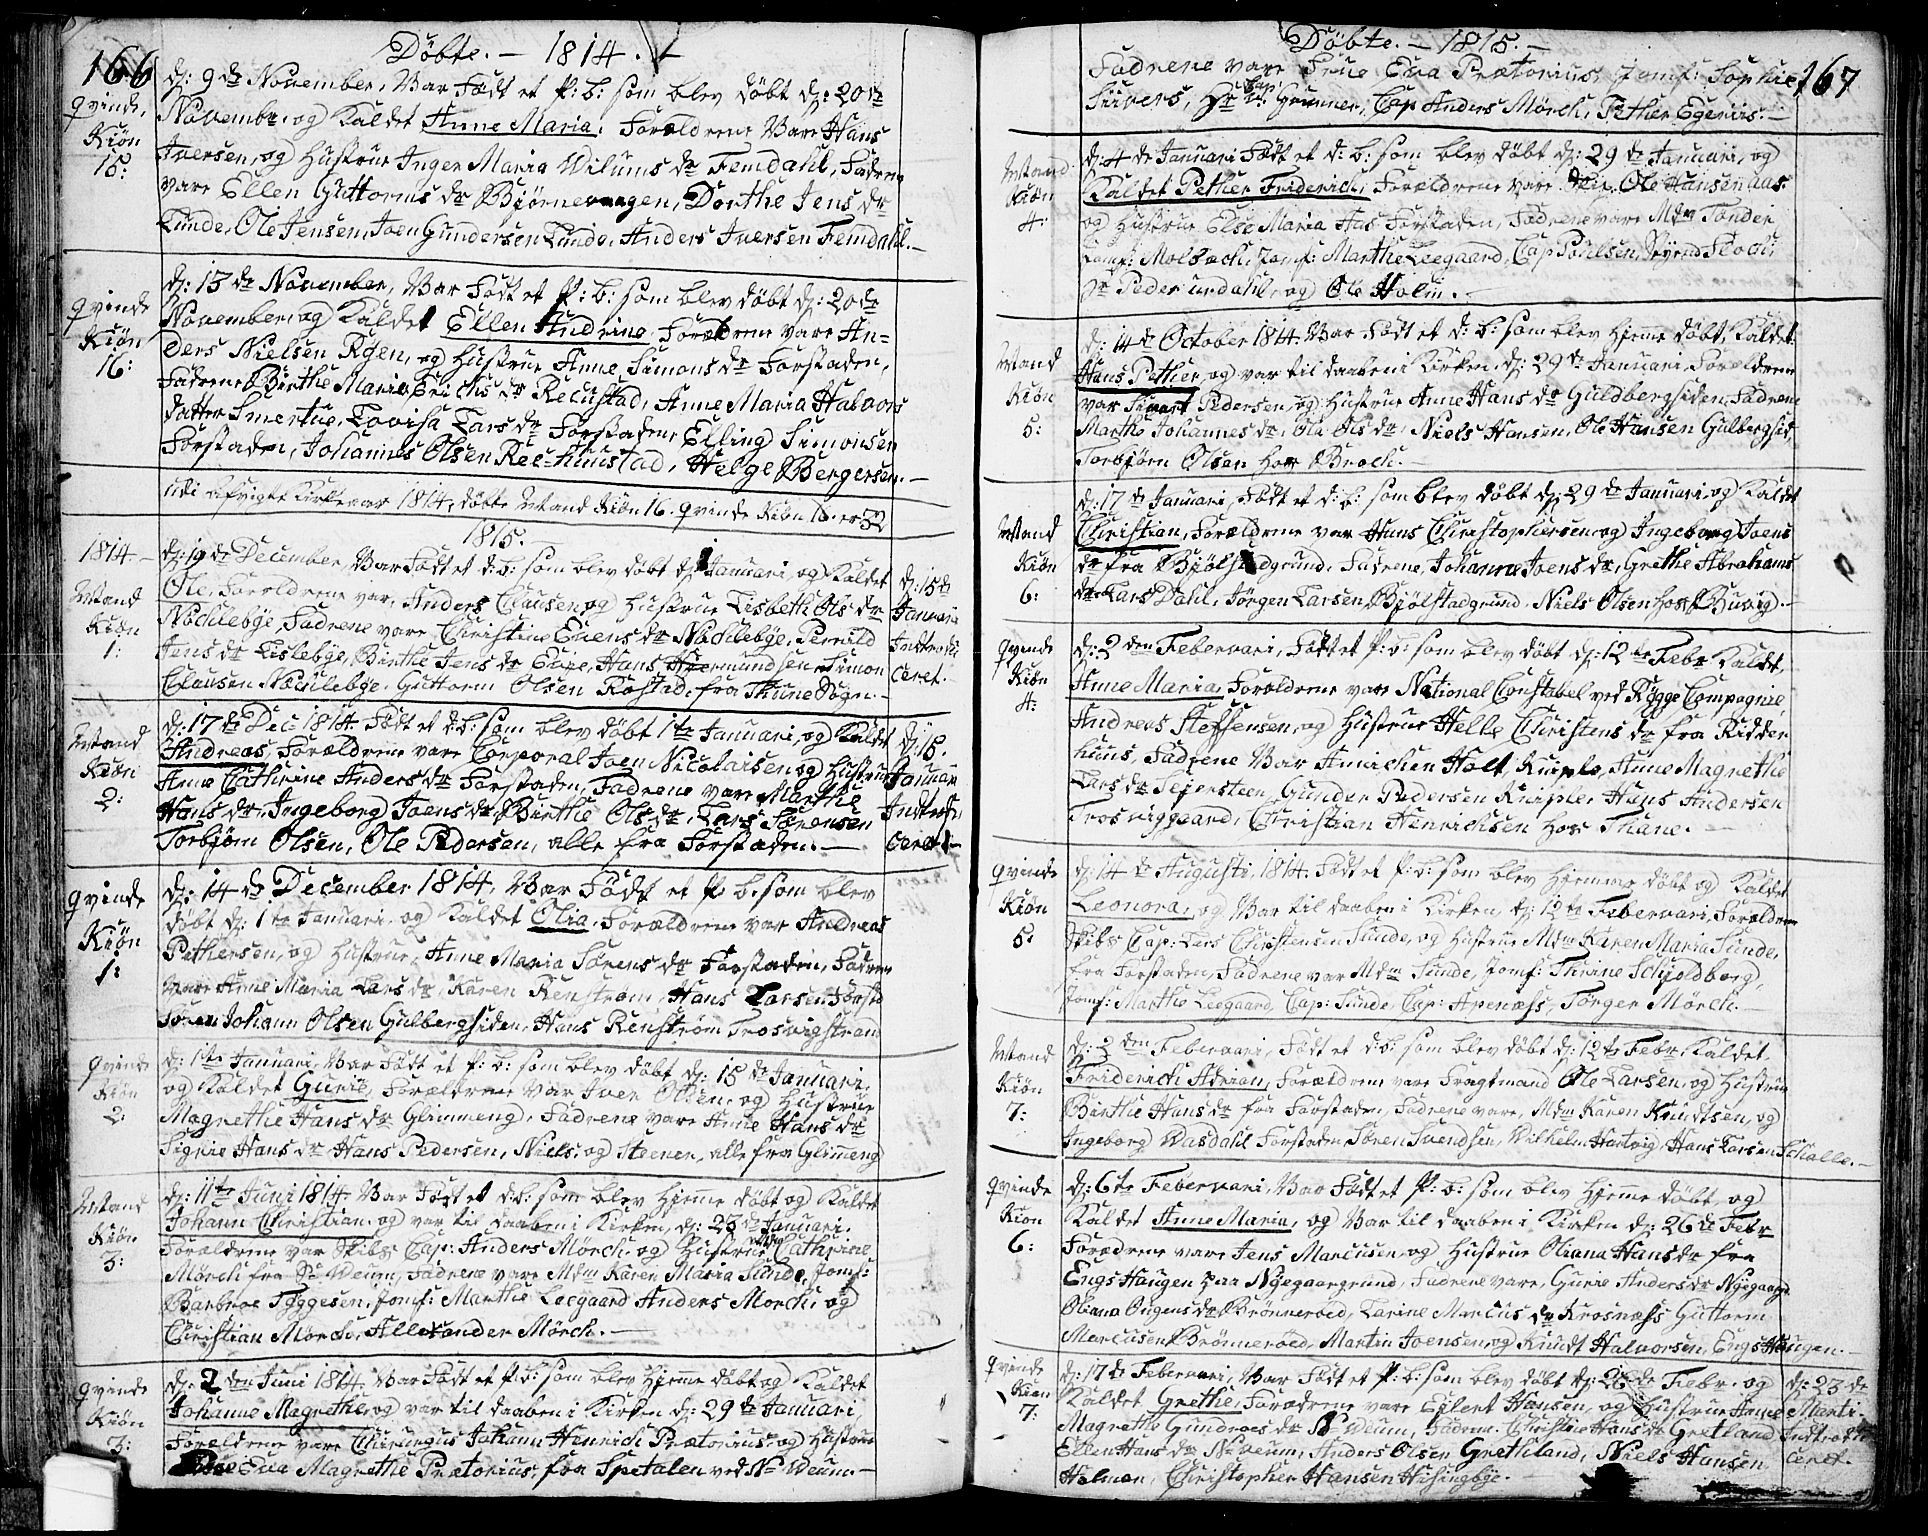 166
Døbte. — 1814. —
qvinde
Kiøn
15:
dj: 9 de November, Var Født et P: b: som blev døbt dj: 20 de
Novembr. og Kaldet Anne Maria. Forældrene Vare Hans
Iversen, og Hustrue Inger Maria Wilums dr Femdahl, Fadrene
vare Ellen Guttorms dr Bjørnevaagen, Dorthe Jens dr
Lunde, Ole Jensen, Joen Gundersen Lunde, Anders Iversen Femdahl. —
qvinde
Kiøn
16:
dj: 13 de November, Var Født et P: b: som blev døbt dj: 20 de
November, og Kaldet Ellen Andrine Forældrene vare An-
ders Nielsen Røen, og Hustrue Anne Simons dr Forstaden,
Fadrene Birthe Maria Erichs dr Recustad, Anne Maria Halvors
datter Smertue, Lovisa Lars dr Forstaden, Elling Simonsen
Forstaden, Johannes Olsen Ree-hunstad, Helge Bergersen. —
udi afvigte Kirkeaar 1814, døbte Mand Kiøn 16. qvinde Kiøn 16. er 32
1815. —
1814. —
Mand
Kiøn
1:
dj: 19 de December, Var Født et d: b: som blev døbt dj 1 Januari, og Kaldet
Ole, Forældrene var, Anders Clausen, og Hustrue Lisbeth Ols dr
Nøchlebye, Fadrene vare Christine Evens dr Nøchlebye, Pernild
Jens dr Lislebye, Birthe Jens dr Eupe, Hans Hermundsen, Simon
Clausen Nøchlebye, Guttorm Olsen Rostad, fra Thune Sogn. —
dj: 15 de
Januari
Indtrodu
ceret. —
Mand
Kiøn
2:
dj: 17 de Dec: 1814. Født et d: b: som blev døbt 1 te Januari, og Kaldet
Andreas, Forældrene vare Corporal Joen Nicolaisen, og Hustrue
Anne Cathrine Anders dr Forstaden, Fadrene vare Marthe
Hans dr, Ingeborg Joens dr, Birthe Ols dr, Lars Sørensen
Torbjørn Olsen, Ole Pedersen, alle fra Forstaden. —
dj: 15.
Januari
Indtrodu
ceret. —
qvinde
Kiøn
1:
dj: 14 de December 1814, Var Født et P: b: som blev
døbt dj: 1 te Januari. og Kaldet Olia, Forældrene var Andreas
Pethersen, og Hustrue, Anne Maria Sørens dr Forstaden, Fadrene
vare Anne Maria Lars dr, Karen Renstrøm, Hans Larsen Forstad
Søren Johann Olsen Gulbergsiden, Hans Renstrøm Trosvigstrand
qvinde
Kiøn
2:
dj: 1 te Januari, Var Født et P: b: som blev døbt dj: 15 de Januari,
og Kaldet Gurie, Forældrene var Iver Olsen, og Hustrue
Magnethe Hans dr Glimmeng, Fadrene vare Anne Hans dr
Signie Hans dr Hans Pedersen, Niels, og Steener, alle fra Glimeng
Mand
Kiøn
3:
dj: 11 te Juni 1814. Var Født et d: b: som blev Hjemme døbt og Kaldet
Johann Christian, og var til daaben i Kirken, dj: 23 de Januari.
Forældrene var Skibs Cap: Anders Mørch, og Hustrue Cathrine
Mørch fra Sr Weum, Fadrene vare Mdm Karen Maria Sunde, Jomf:
Barbroe Tyggesen, Jomf: Marthe Leegaard Anders Mørch, og
Christian Mørch, Allexander Mørch. —
qvinde
Kiøn
3:
dj: 2 den Juni 1814. Var Født et P: b: som blev Hjemme døbt og Kaldet
Johanne Magrethe, og var til daaben i Kirken dj: 29 de Januari,
Forældrene vare Chirurgus Johann Henrich Prætorius, og Hustrue
Eva Magrethe Prætorius, fra Spetalen ved Nr Weum. —
167
Døbte. — 1815. —
Fadrene vare Frue Eva Prætorius, Jomf: Sophie
Siivers, Hr Gruner, Cap Anders Mørch, Pether Egeniis. —
Mand
Kiøn
4:
dj: 4 de Januari Født et d: b: som blev døbt dj: 29 de Januari, og
Kaldet Pether Friderich, Forældrene vare Skip. Ole Hansen aas
og Hustrue Else Maria Aas Forstaden, Fadrene vare Mdm Tønder
Jomf: Molbach, Jomf: Marthe Leegaard, Cap Poulsen, Sivend Floch,
Sr Peder undahl, og Ole Holm. —
Mand
Kiøn
5:
dj: 14 de October 1814. Var Født et d: b: som blev Hjemme døbt, Kaldet
Hans Pether, og var til daaben i Kirken, dj: 29 de Januari, Forældrene
var Sivert Pedersen, og Hustrue Anne Hans dr Guldbergsiden, Fadrene
Marthe Johannes dr, Ola Ols dr, Niels Hansen, Ole Hansen Gulbergsid,
Torbjørn Olsen hos Broch. —
Mand
Kiøn
6:
dj: 17 de Januari, Født et d: b: som blev døbt dj: 29 de Januari, og Kaldet
Christian, Forældrene var Hans Christophersen, og Ingeborg Joens
dr fra Bjølstadgrund, Fadrene, Johanne Joens dr, Grethe Abrahams
dr Lars Dahl, Jørgen Larsen, Bjølstadgrund, Niels Olsen hos Buvig. —
qvinde
Kiøn
4:
dj: 2 den Februari, Født et P: b: som blev døbt dj: 12 te Febr Kaldet,
Anne Maria, Forældrene vare National Constabel ved Rygge Compagnie,
Andreas Steffensen, og Hustrue Helle Christens dr fra Ridder
huus, Fadrene Var Anichen Holt, Kniple, Anne Magnethe
Lars dr Sejersteen, Gunder Pedersen Kniple, Hans Andersen
Trosviggaard, Christian Henrichsen hos Thane. —
qvinde
Kiøn
5:
dj: 14 de Augusti, 1814. Født et P: b: som blev Hjemme døbt og Kaldet
Leonora, og Var til daaben i Kirken, dj: 12 te Februari, Forældrene
Skibs Cap: Lars Christensen Sunde, og Hustrue Mdm Karen Maria Sunde,
fra Forstaden, Fadrene var Mdm Sunde, Jomf: Thrine Schjoldborg,
Jomf: Marthe Leegaard, Cap: Sunde, Cap: Apenæss, Jørger Mørch. —
Mand
Kiøn
7:
dj: 3 den Februari, Født et d: b: som blev døbt dj: 12 te Febr. Kaldet,
Friderich Adrian, Forældrene vare Fragtmand Ole Larsen, og Hustrue
Birthe Hans dr fra Forstaden, Fadrene vare, Mdm Karen Knudtsen, og
Ingeborg Wasdahl Forstaden, Søren Svendsen, Wilhelm Hartvig, Hans Larsen Schalle. —
qvinde
Kiøn
6:
dj: 6 te Februari, Var Født et P: b: som blev Hjemme døbt, og
Kaldet Anne Maria, og Var til daaben i Kirken dj: 26 de Febr
Forældrene vare Jens Marcusen, og Hustrue Oliana Hans dr fra
Engs Haugen paa Nygaargrund, Fadrene vare, Gurie Anders dr Nygaard
Oliana Ougens dr Brønnerød, Larine Marcus dr Krosnæss Guttorm
Marcusen Brønnerød, Martin Joensen, og Knudt Halvorsen, Engs Haugen. —
qvinde
Kiøn
7:
dj: 17 de Februari, Var Født et P: b: som blev døbt dj: 26 de Febr. og
Kaldet Grethe, Forældrene vare Eilert Hansen, og Hustrue Anne
Magnethe Gundroes dr Nr Weum, Fadrene Christine Hans dr Gretland,
Ellen Hans dr Nr Weum, Anders Olsen Grethland, Niels Hansen
Holmen, Christopher Hansen Husingbye.
dj: 23 de
Marti
Indtrodu
ceret.